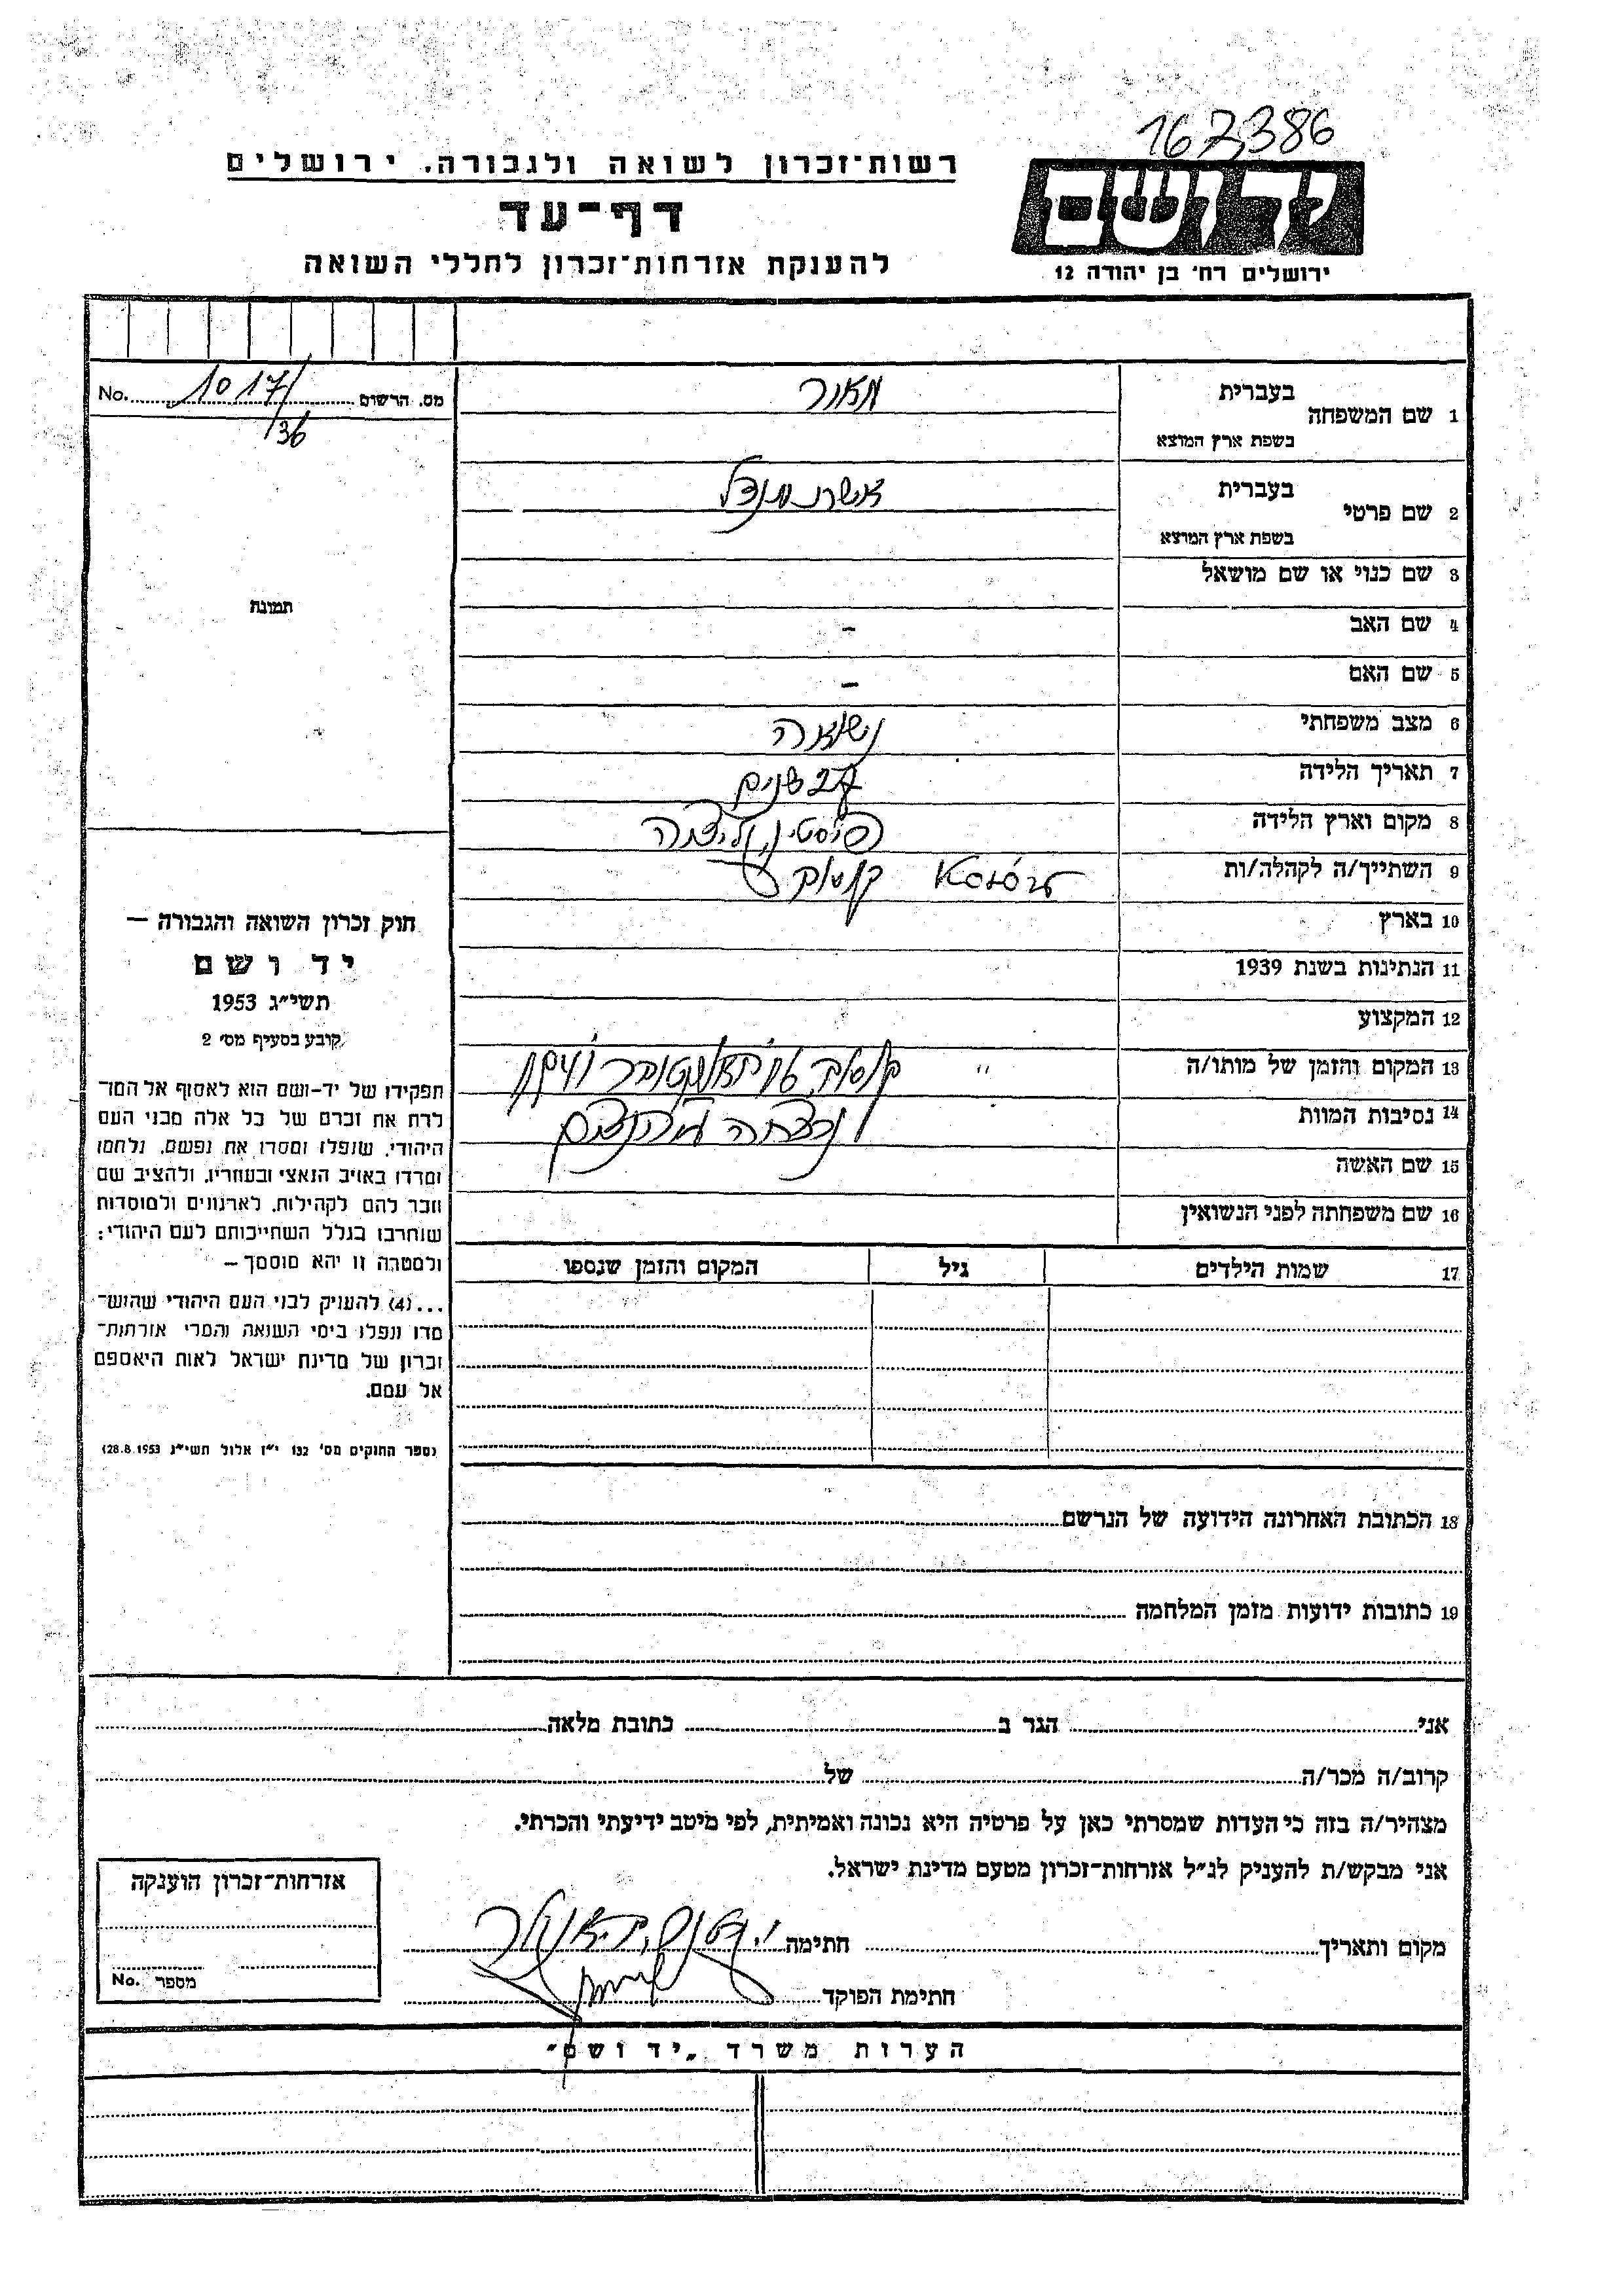 167386
רשות־זכרון לשואה ולגבורה, ירושלים
יד ושם
דף־עד
להענקת אזרחות־זכרון לחללי השואה
ירושלים רח' בן יהודה 12
מס. הרשום 1017/ No.
/36
תמונה
1 שם המשפחה
בעברית מאור
בשפת ארץ המוצא
2 שם פרטי
בעברית
בשפת ארץ המוצא
3 שם כנוי או שם מושאל
4 שם האב –
5 שם האם –
6 מצב משפחתי נשואה
7 תאריך הלידה 27 שנים
8 מקום וארץ הלידה
9 השתייך/ה לקהלה/ות
10 בארץ
11 הנתינות בשנת 1939
12 המקצוע
13 המקום והזמן של מותו/ה
14 נסיבות המוות נרצחה
15 שם האשה
16 שם משפחתה לפני הנשואין
17 שמות הילדים גיל המקום והזמן שנספו
חוק זכרון השואה והגבורה –
יד ושם
תשי״ג 1953
קובע בסעיף מס׳ 2
תפקידו של יד-ושם הוא לאסוף אל המו־
לדת את זכרם של כל אלה מבני העם
היהודי, שנפלו ומסרו את נפשם, נלחמו
ומרדו באויב הנאצי ובעוזריו, ולהציב שם
וזכר להם לקהילות, לארגונים ולמוסדות
שנחרבו בגלל השתייכותם לעם היהודי;
ולמטרה זו יהא מוסמך –
...(4) להעניק לבני העם היהודי שהוש־
מדו ונפלו בימי השואה והמרי אזרחות־
זכרון של מדינת ישראל לאות היאספם
אל עמם.
(ספר החוקים מס׳ 132 י״ז אלול תשי״ג 28.8.1953)
18 הכתובת האחרונה הידועה של הנרשם
19 כתובות ידועות מזמן המלחמה
אני הגר ב כתובת מלאה
קרוב/ה מכר/ה של
מצהיר/ה בזה כי העדות שמסרתי כאן על פרטיה היא נכונה ואמיתית, לפי מיטב ידיעתי והכרתי.
אני מבקש/ת להעניק לנ״ל אזרחות־זכרון מטעם מדינת ישראל.
מקום ותאריך חתימה
חתימת הפוקד
אזרחות־זכרון הוענקה
מספר No.
הערות משרד „יד ושם״